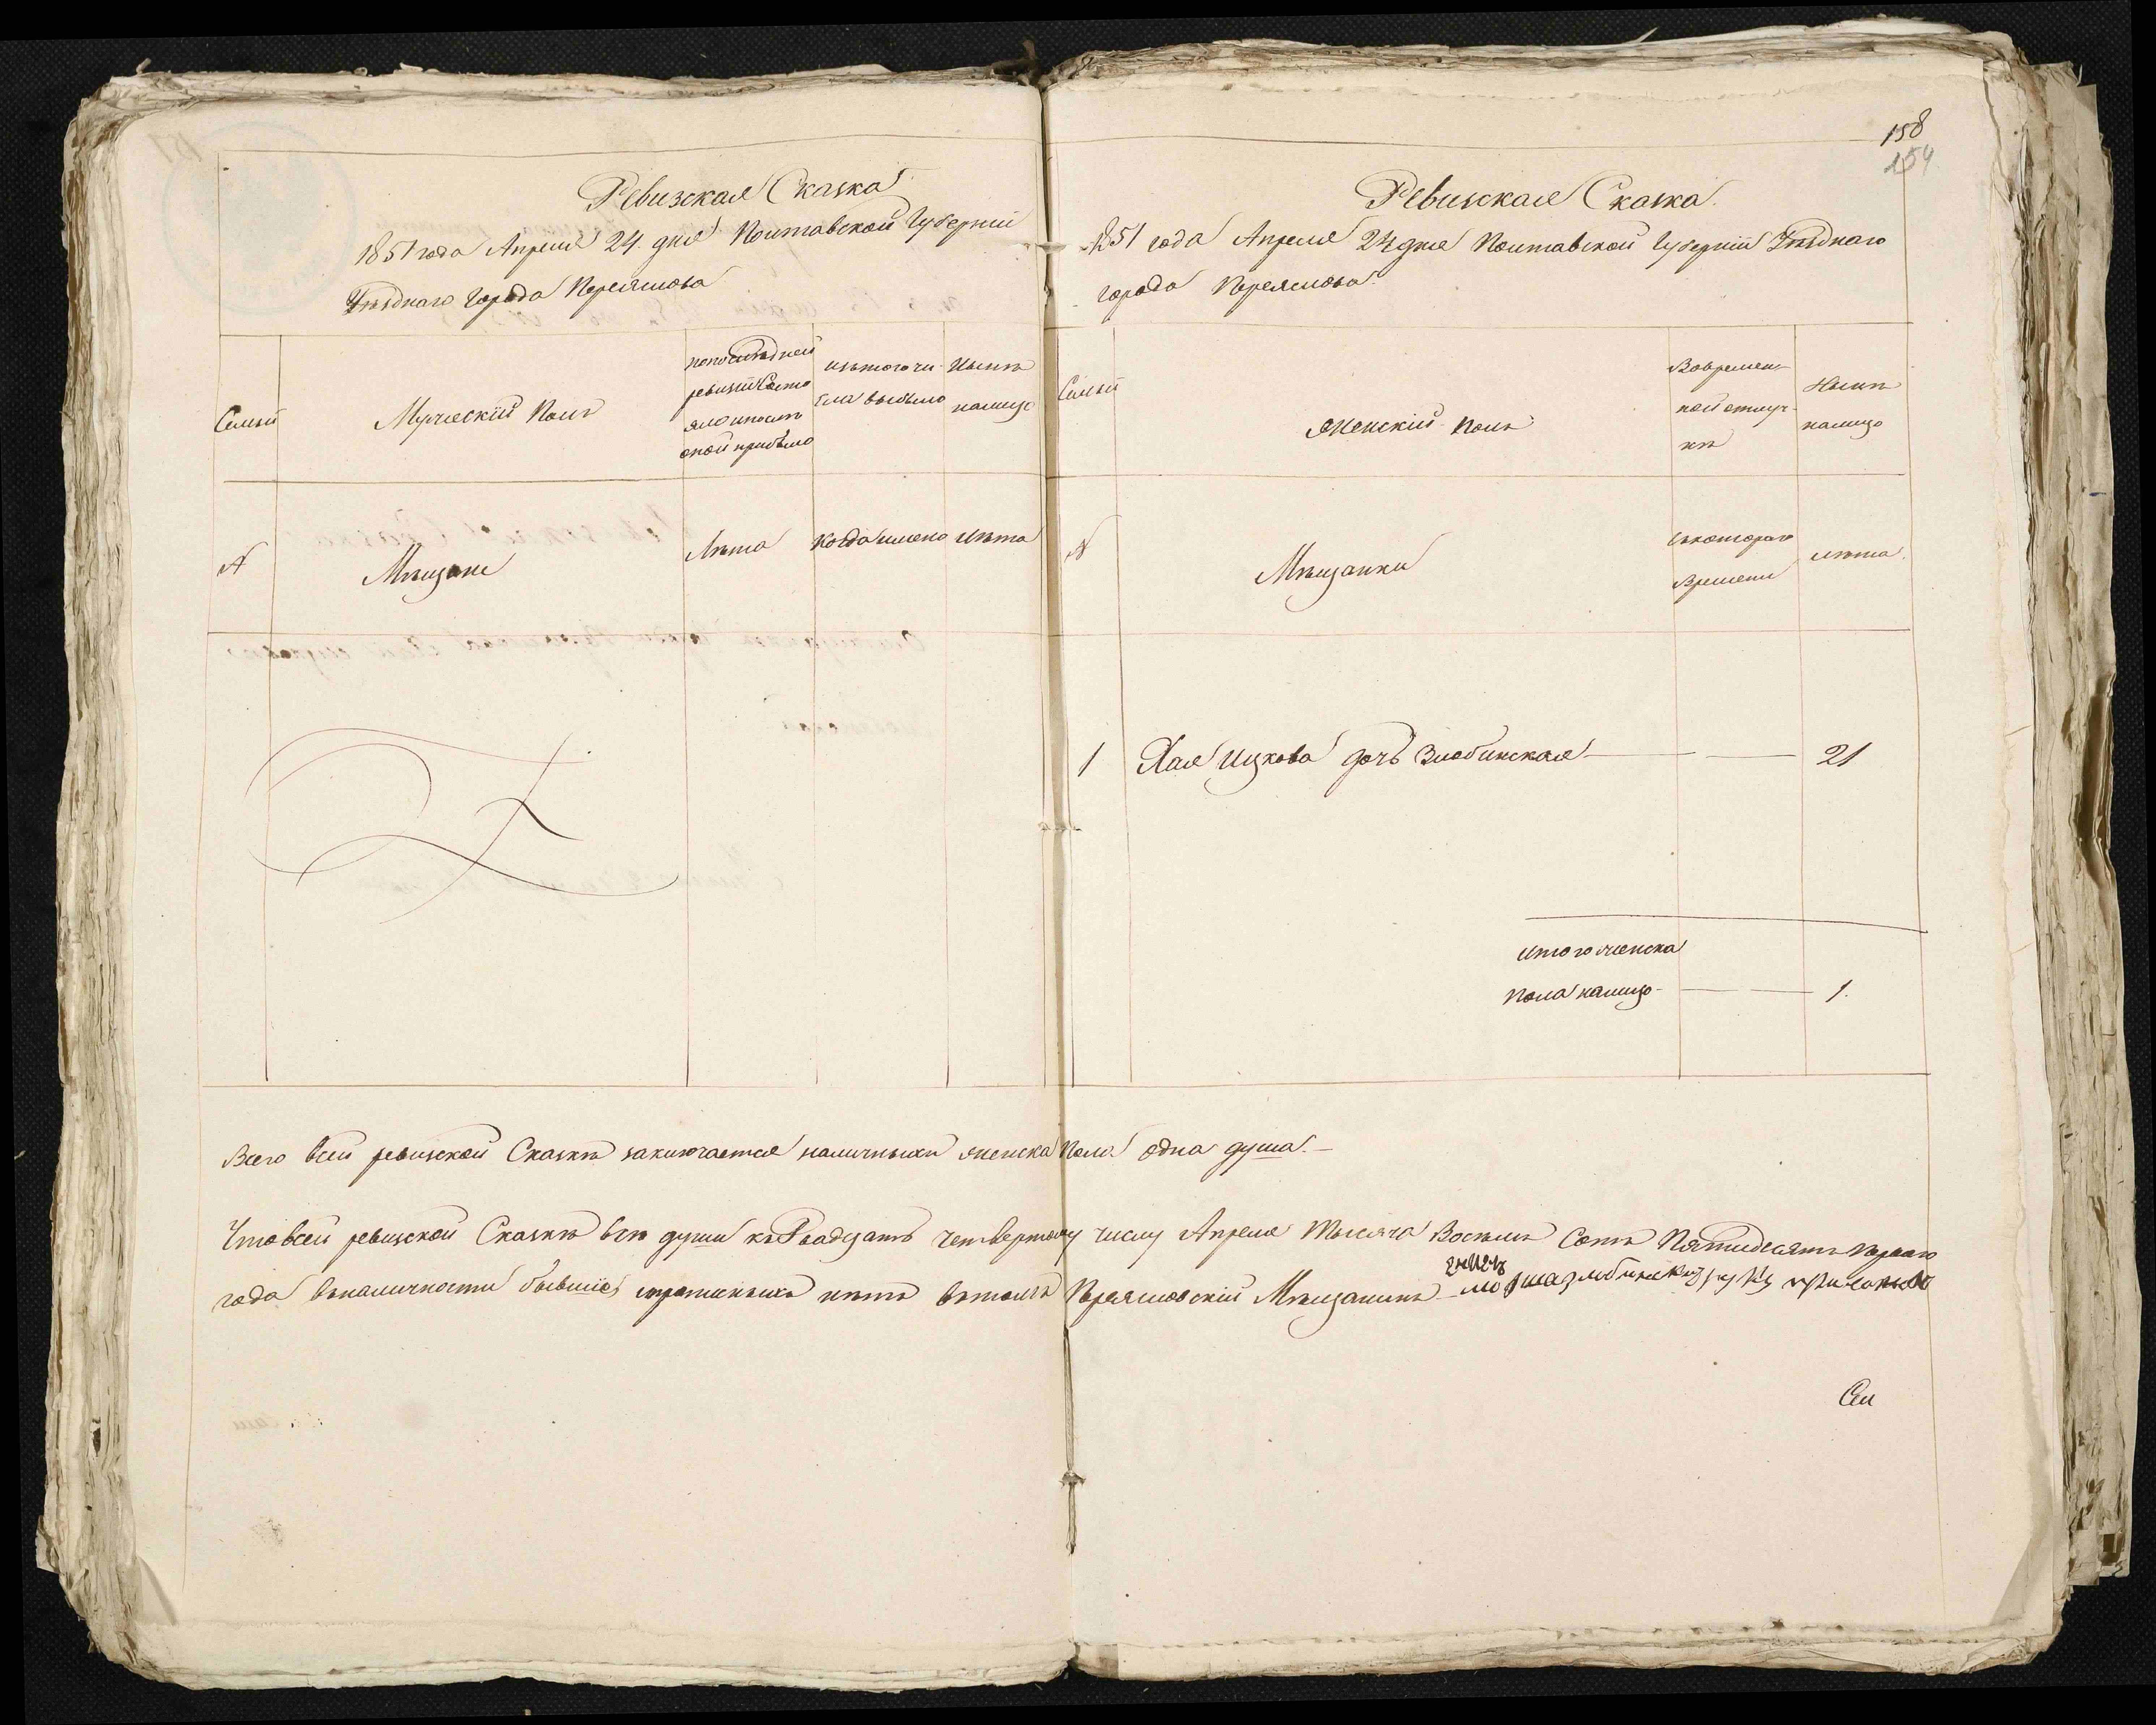 Ревизская Сказка
1851 года Апреля 24 дня Полтавской Губернiи
Уѣзднаго города Переяслова
Семьи
Мужескiй Полъ
попослѣдней
ревизiи Состо
яло ипослѣ
оной прибыло
изътого чи
сла выбыло
Нынѣ
налицо
№
Мѣщане
Лѣта
Когда имено
Лѣта
158
154
Ревизская Сказка
1851 года Апреля 24 дня Полтавской Губернiи Уѣзднаго
города Переяслова
Семьи
Женскiй Полъ
Вовремен-
ной отлуч-
кѣ
Нынѣ
налицо
№
Мѣщанки
Скотораго
Времени
лѣта
1 Хая Ицкова дочь Злобинская 21
Итого женска
пола налицо 1.
Всего всей ревизской Сказкѣ заключается наличными женска пола одна душа.
Что всей ревизской Сказкѣ всѣ души къ Двадцать четвертому числу Апреля Тысяча Восемь Сотъ Пятидесятъ перваго
года вналичности бывшiе, прописныхъ нѣтъ втомъ Переясловскiй Мѣщанинъ
Сей